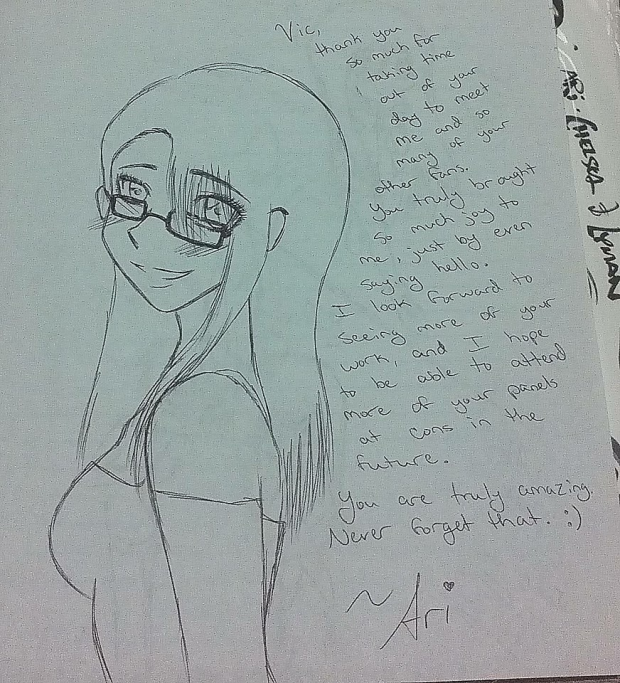 Vic,
thank you
so much for
taking time
out of your
day to meet
me and so
many of your
other fans.
You truly brought
so much joy to
me, just by even
saying hello.
I look forward to
seeing more of your
work, and I hope
to be able to attend
more of your panels
at cons in the
future.
You are truly amazing.
Never forget that. :)
~Ari
ARi · CHELSEA & LYMAN